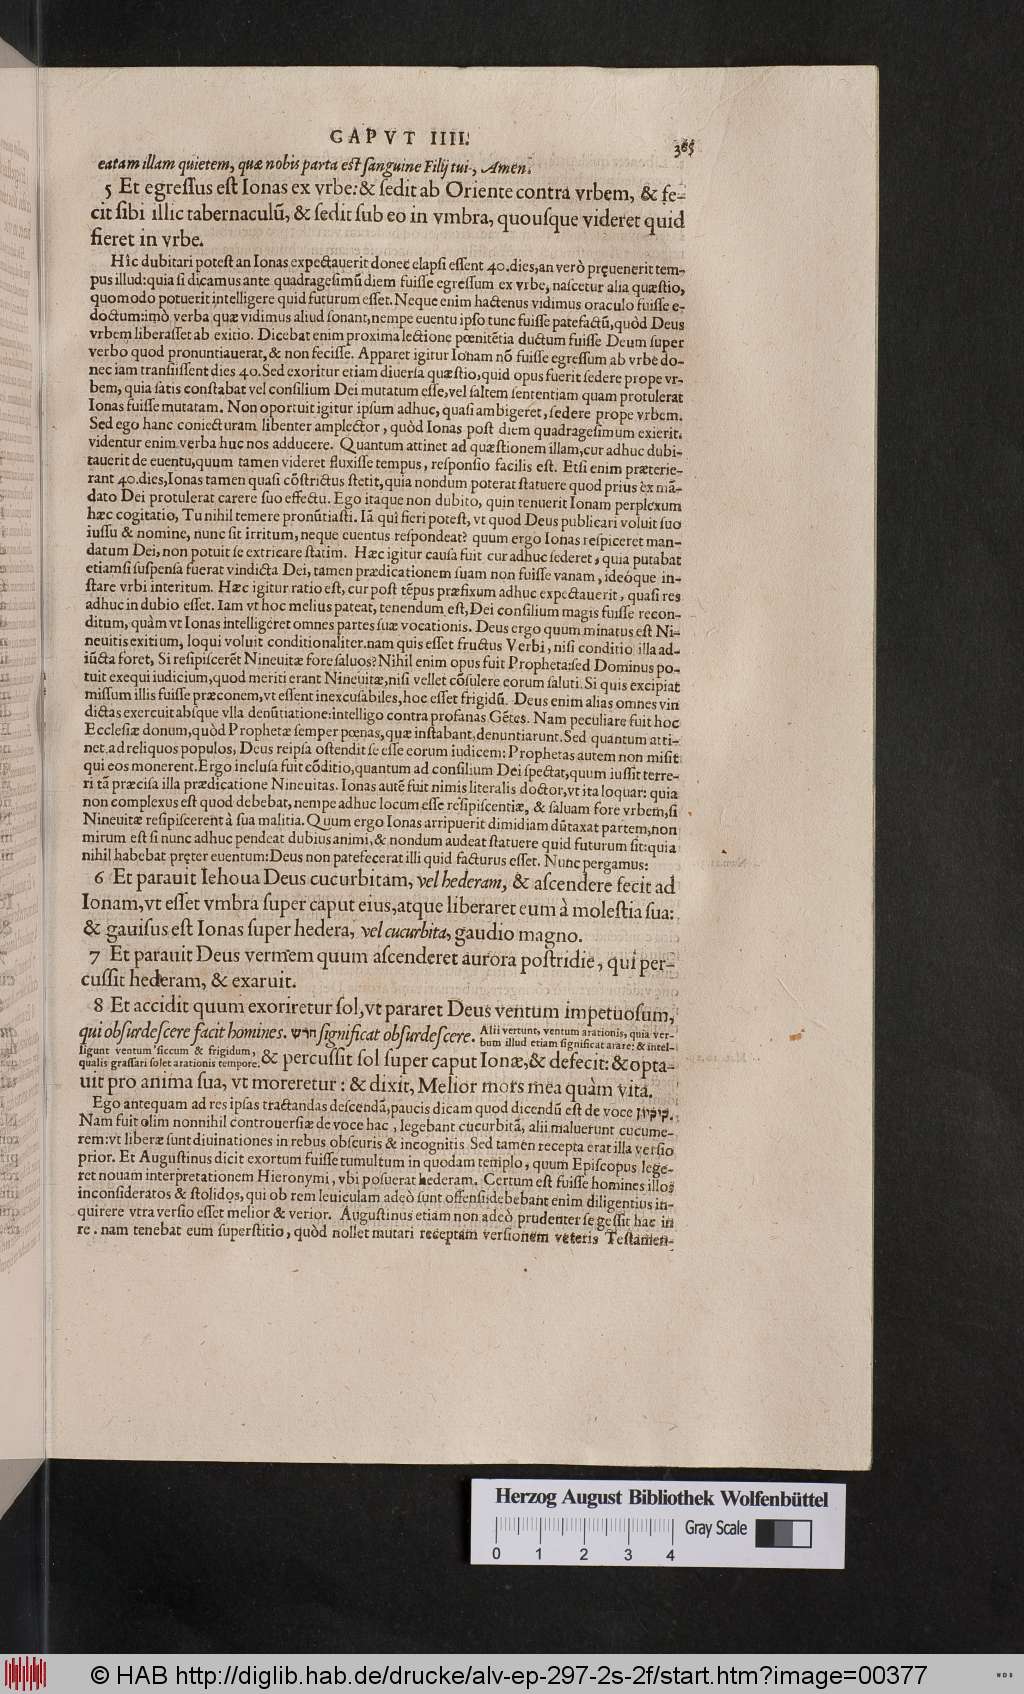 CAPVT IIII.
365
eatam illam quietem, quæ nobis parta est sanguine Filij tui, Amen.
5 Et egreſſus eſt Ionas ex vrbe: & ſedit ab Oriente contra vrbem, & fe-
cit ſibi illic tabernaculū, & ſedit ſub eo in vmbra, quouſque videret quid
fieret in vrbe.
Hîc dubitari poteſt an Ionas expectauerit donec elapſi eſſent 40. dies, an verò pręuenerit tem-
pus illud: quia ſi dicamus ante quadrageſimū diem fuiſſe egreſſum ex vrbe, naſcetur alia quæſtio,
quomodo potuerit intelligere quid futurum eſſet. Neque enim hactenus vidimus oraculo fuiſſe e-
doctum: imò verba quæ vidimus aliud ſonant, nempe euentu ipſo tunc fuiſſe patefactū, quòd Deus
vrbem liberaſſet ab exitio. Dicebat enim proxima lectione pœnitētia ductum fuiſſe Deum ſuper
verbo quod pronuntiauerat, & non feciſſe. Apparet igitur Ionam nō fuiſſe egreſſum ab vrbe do-
nec iam tranſiiſſent dies 40. Sed exoritur etiam diuerſa quæſtio, quid opus fuerit ſedere prope vr-
bem, quia ſatis conſtabat vel conſilium Dei mutatum eſſe, vel ſaltem ſententiam quam protulerat
Ionas fuiſſe mutatam. Non oportuit igitur ipſum adhuc, quaſi ambigeret, ſedere prope vrbem.
Sed ego hanc coniecturam libenter amplector, quòd Ionas poſt diem quadrageſimum exierit.
videntur enim verba huc nos adducere. Quantum attinet ad quæſtionem illam, cur adhuc dubi-
tauerit de euentu, quum tamen videret fluxiſſe tempus, reſponſio facilis eſt. Etſi enim præterie-
rant 40. dies, Ionas tamen quaſi cōſtrictus ſtetit, quia nondum poterat ſtatuere quod prius ex mā-
dato Dei protulerat carere ſuo effectu. Ego itaque non dubito, quin tenuerit Ionam perplexum
hæc cogitatio, Tu nihil temere pronūtiaſti. Iā quî fieri poteſt, vt quod Deus publicari voluit ſuo
iuſſu & nomine, nunc ſit irritum, neque euentus reſpondeat? quum ergo Ionas reſpiceret man-
datum Dei, non potuit ſe extricare ſtatim. Hæc igitur cauſa fuit cur adhuc ſederet, quia putabat
etiamſi ſuſpenſa fuerat vindicta Dei, tamen prædicationem ſuam non fuiſſe vanam, ideóque in-
ſtare vrbi interitum. Hæc igitur ratio eſt, cur poſt tēpus præfixum adhuc expectauerit, quaſi res
adhuc in dubio eſſet. Iam vt hoc melius pateat, tenendum eſt, Dei conſilium magis fuiſſe recon-
ditum, quàm vt Ionas intelligeret omnes partes ſuæ vocationis. Deus ergo quum minatus eſt Ni-
neuitis exitium, loqui voluit conditionaliter. nam quis eſſet fructus Verbi, niſi conditio illa ad-
iūcta foret, Si reſipiſcerēt Nineuitæ fore ſaluos? Nihil enim opus fuit Propheta: ſed Dominus po-
tuit exequi iudicium, quod meriti erant Nineuitæ, niſi vellet cōſulere eorum ſaluti. Si quis excipiat
miſſum illis fuiſſe præconem, vt eſſent inexcuſabiles, hoc eſſet frigidū. Deus enim alias omnes vin
dictas exercuit abſque vlla denūtiatione: intelligo contra profanas Gētes. Nam peculiare fuit hoc
Eccleſiæ donum, quòd Prophetæ ſemper pœnas, quæ inſtabant, denuntiarunt. Sed quantum atti-
net ad reliquos populos, Deus reipſa oſtendit ſe eſſe eorum iudicem: Prophetas autem non miſit
qui eos monerent. Ergo incluſa fuit cōditio, quantum ad conſilium Dei ſpectat, quum iuſſit terre-
ri tā præciſa illa prædicatione Nineuitas. Ionas autē fuit nimis literalis doctor, vt ita loquar: quia
non complexus eſt quod debebat, nempe adhuc locum eſſe reſipiſcentiæ, & ſaluam fore vrbem, ſi
Nineuitæ reſipiſcerent à ſua malitia. Quum ergo Ionas arripuerit dimidiam dūtaxat partem, non
mirum eſt ſi nunc adhuc pendeat dubius animi, & nondum audeat ſtatuere quid futurum ſit: quia
nihil habebat pręter euentum: Deus non patefecerat illi quid facturus eſſet. Nunc pergamus:
6 Et parauit Iehoua Deus cucurbitam, vel hederam, & aſcendere fecit ad
Ionam, vt eſſet vmbra ſuper caput eius, atque liberaret eum à moleſtia ſua:
& gauiſus eſt Ionas ſuper hedera, vel cucurbita, gaudio magno.
7 Et parauit Deus vermem quum aſcenderet aurora poſtridie, qui per-
cuſſit hederam, & exaruit.
8 Et accidit quum exoriretur ſol, vt pararet Deus ventum impetuoſum,
qui obſurdeſcere facit homines. חרש ſignificat obſurdeſcere. Alii vertunt, ventum arationis, quia ver-
bum illud etiam ſignificat arare: & intel-
ligunt ventum ſiccum & frigidum,
qualis graſſari ſolet arationis tempore. & percuſſit ſol ſuper caput Ionæ, & defecit: & opta-
uit pro anima ſua, vt moreretur: & dixit, Melior mors mea quàm vita.
Ego antequam ad res ipſas tractandas deſcendā, paucis dicam quod dicendū eſt de voce קיקיון.
Nam fuit olim nonnihil controuerſiæ de voce hac, legebant cucurbitā, alii maluerunt cucume-
rem: vt liberæ ſunt diuinationes in rebus obſcuris & incognitis. Sed tamen recepta erat illa verſio
prior. Et Auguſtinus dicit exortum fuiſſe tumultum in quodam templo, quum Epiſcopus lege-
ret nouam interpretationem Hieronymi, vbi poſuerat hederam. Certum eſt fuiſſe homines illos
inconſideratos & ſtolidos, qui ob rem leuiculam adeò ſunt offenſi: debebant enim diligentius in-
quirere vtra verſio eſſet melior & verior. Auguſtinus etiam non adeò prudenter ſe geſſit hac in
re. nam tenebat eum ſuperſtitio, quòd nollet mutari receptam verſionem veteris Teſtamen-
Herzog August Bibliothek Wolfenbüttel
Gray Scale
0 1 2 3 4
© HAB http://diglib.hab.de/drucke/alv-ep-297-2s-2f/start.htm?image=00377